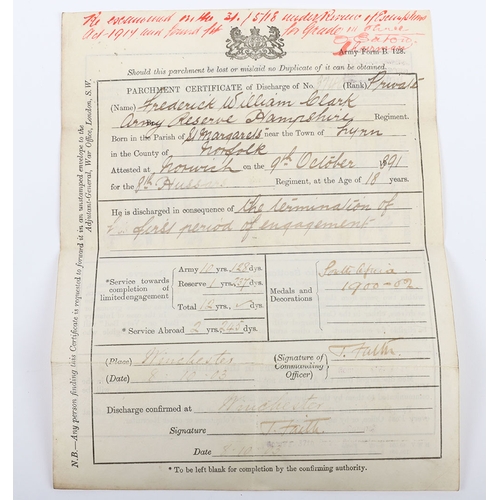 Re examined on the 31/5/18 under Review of Exceptions
Act 1917 and found fit for Grade
Army Form B. 128.
Should this parchment be lost or mislaid no Duplicate of it can be obtained.
PARCHMENT CERTIFICATE of Discharge of No. (Rank) Private
(Name) Frederick William Clark
Army Reserve Hampshire Regiment.
Born in the Parish of St Margarets near the Town of Lynn
in the County of Norfolk
Attested at Norwich on the 9th October 1891
for the 8th Hussars Regiment, at the Age of 18 years.
He is discharged in consequence of the termination of
his first period of engagement
*Service towards completion of limited engagement
Army 10 yrs. 128 dys.
Reserve 1 yrs. 237 dys.
Total 12 yrs. dys.
* Service Abroad 2 yrs. dys.
Medals and Decorations
South Africa
1900-02
(Place) Winchester
(Date) 8.10.03
(Signature of Commanding Officer) T. Faith
Discharge confirmed at Winchester
Signature T. Faith
Date 8.10.03
* To be left blank for completion by the confirming authority.
N.B.—Any person finding this Certificate is requested to forward it in an unstamped envelope to the
Adjutant-General, War Office, London, S.W.